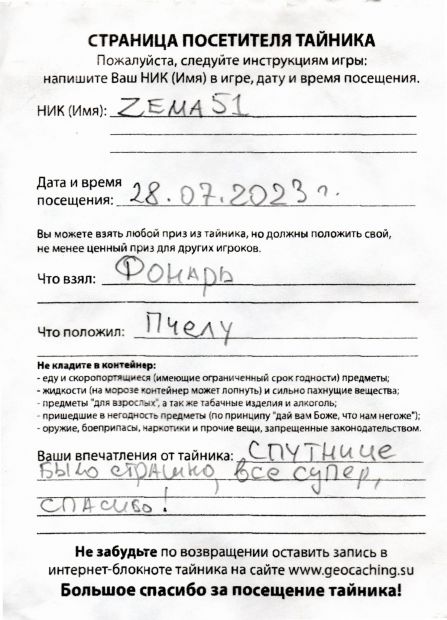 СТРАНИЦА ПОСЕТИТЕЛЯ ТАЙНИКА
Пожалуйста, следуйте инструкциям игры:
напишите Ваш НИК (Имя) в игре, дату и время посещения.
НИК (Имя): ZEMA51
Дата и время
посещения: 28.07.2023 г.
Вы можете взять любой приз из тайника, но должны положить свой,
не менее ценный приз для других игроков.
Что взял: Фонарь
Что положил: Пчелу
Не кладите в контейнер:
- еду и скоропортящиеся (имеющие ограниченный срок годности) предметы;
- жидкости (на морозе контейнер может лопнуть) и сильно пахнущие вещества;
- предметы "для взрослых", а так же табачные изделия и алкоголь;
- пришедшие в негодность предметы (по принципу "дай вам Боже, что нам негоже");
- оружие, боеприпасы, наркотики и прочие вещи, запрещенные законодательством.
Ваши впечатления от тайника: СПУТНИЦЕ
БЫЛО СТРАШНО, все супер,
СПАСИБО!
Не забудьте по возвращении оставить запись в
интернет-блокноте тайника на сайте www.geocaching.su
Большое спасибо за посещение тайника!